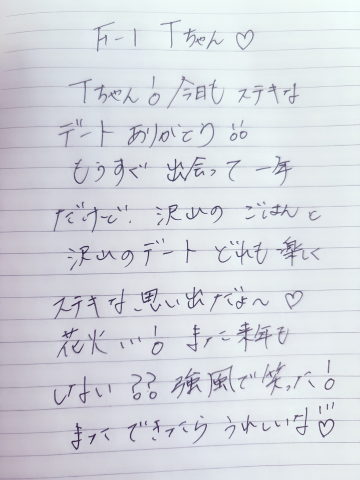 Tちゃん♡
Tちゃん!今日もステキな
デートありがとう!!
もうすぐ出会って一年
だけど、沢山のごはんと
沢山のデートどれも楽しく
ステキな思い出だよ〜♡
花火…!また来年も
しない??強風で笑った!
またできたらうれしいな!!!♡